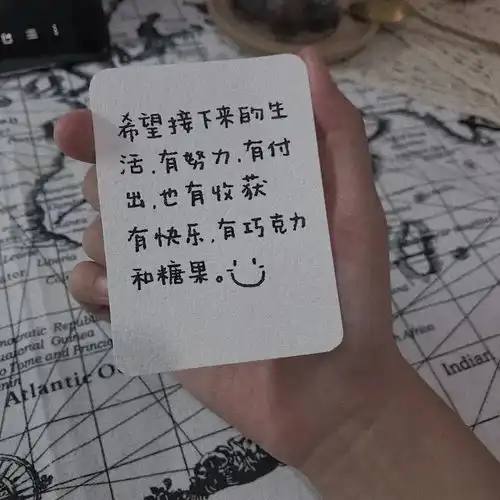 希望接下来的生
活,有努力,有付
出,也有收获
有快乐,有巧克力
和糖果。
Democratic Republic
Equatorial Guinea
Sao Tome and Principe
Benin
Atlantic O
Africa
Indian